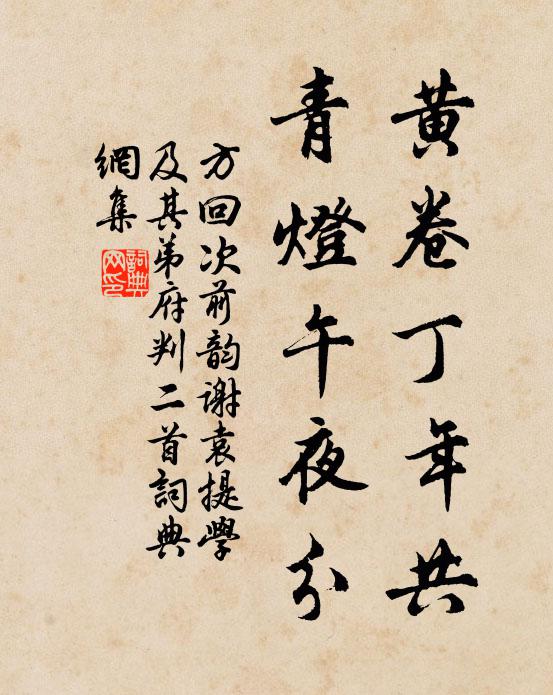 黄卷丁年共
青燈午夜分
方回次前韵謝袁提學
及其弟府判二首詞典
網集
詞典網印